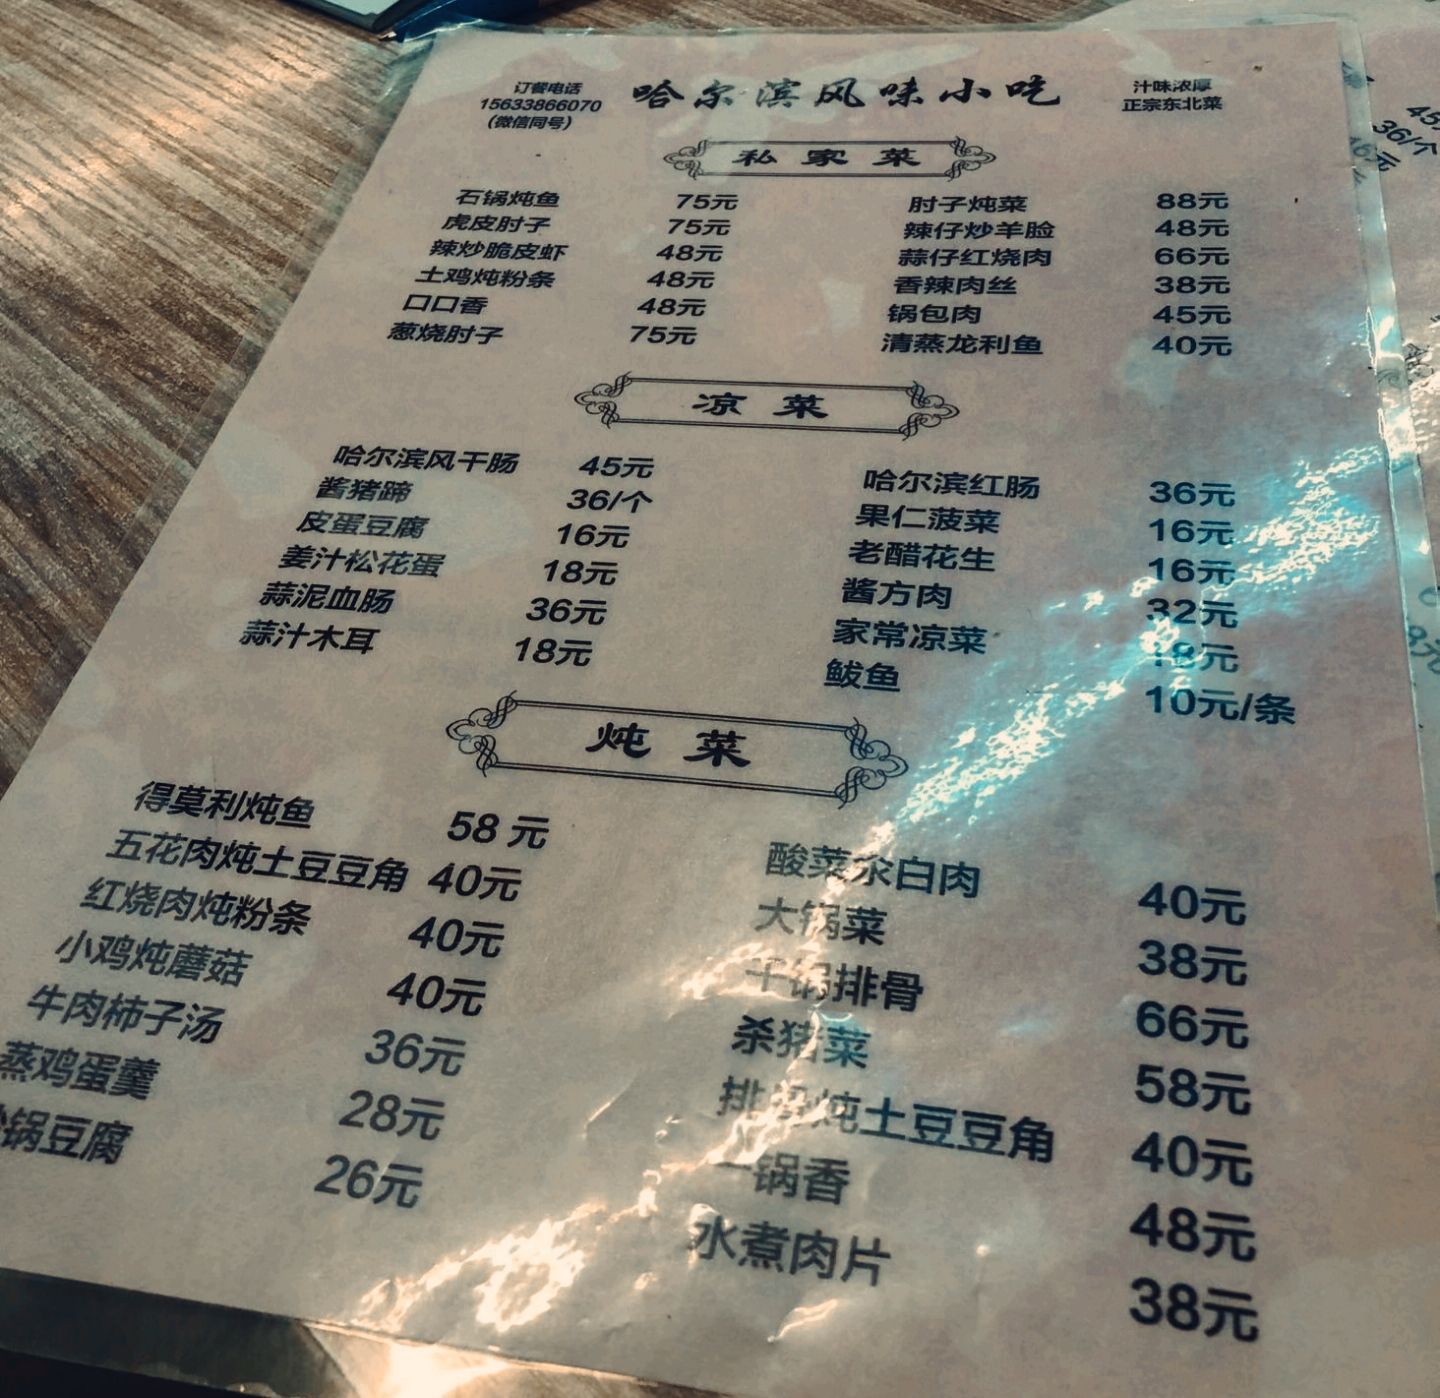 订餐电话
15633866070
（微信同号）
哈尔滨风味小吃
汁味浓厚
正宗东北菜
私家菜
石锅炖鱼 75元
虎皮肘子 75元
辣炒脆皮虾 48元
土鸡炖粉条 48元
口口香 48元
葱烧肘子 75元
肘子炖菜 88元
辣仔炒羊脸 48元
蒜仔红烧肉 66元
香辣肉丝 38元
锅包肉 45元
清蒸龙利鱼 40元
凉菜
哈尔滨风干肠 45元
酱猪蹄 36/个
皮蛋豆腐 16元
姜汁松花蛋 18元
蒜泥血肠 36元
蒜汁木耳 18元
哈尔滨红肠 36元
果仁菠菜 16元
老醋花生 16元
酱方肉 32元
家常凉菜 18元
鲅鱼 10元/条
炖菜
得莫利炖鱼 58 元
五花肉炖土豆豆角 40元
红烧肉炖粉条 40元
小鸡炖蘑菇 40元
牛肉柿子汤 36元
蒸鸡蛋羹 28元
锅豆腐 26元
酸菜汆白肉 40元
大锅菜 38元
干锅排骨 66元
杀猪菜 58元
排骨炖土豆豆角 40元
一锅香 48元
水煮肉片 38元
36/个